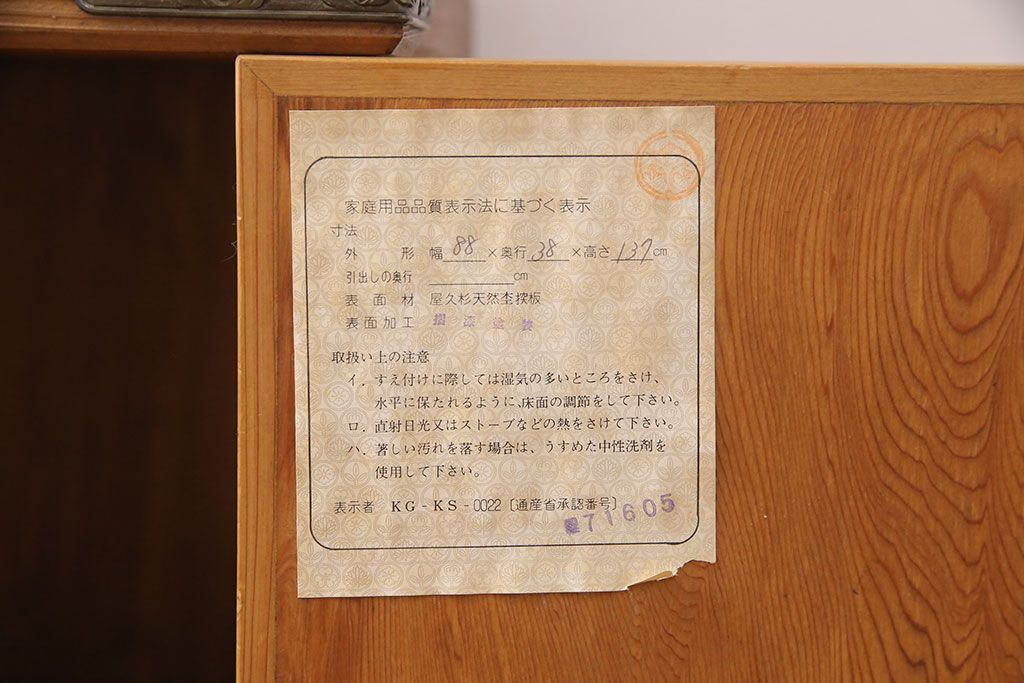 家庭用品品質表示法に基づく表示
寸法
外形 幅88×奥行38×高さ137cm
引出しの奥行 cm
表面材 屋久杉天然杢突板
表面加工 摺漆塗装
取扱い上の注意
イ．すえ付けに際しては湿気の多いところをさけ、
水平に保たれるように、床面の調節をして下さい。
ロ．直射日光又はストーブなどの熱をさけて下さい。
ハ．著しい汚れを落す場合は、うすめた中性洗剤を
使用して下さい。
表示者 KG-KS-0022〔通産省承認番号〕
71605